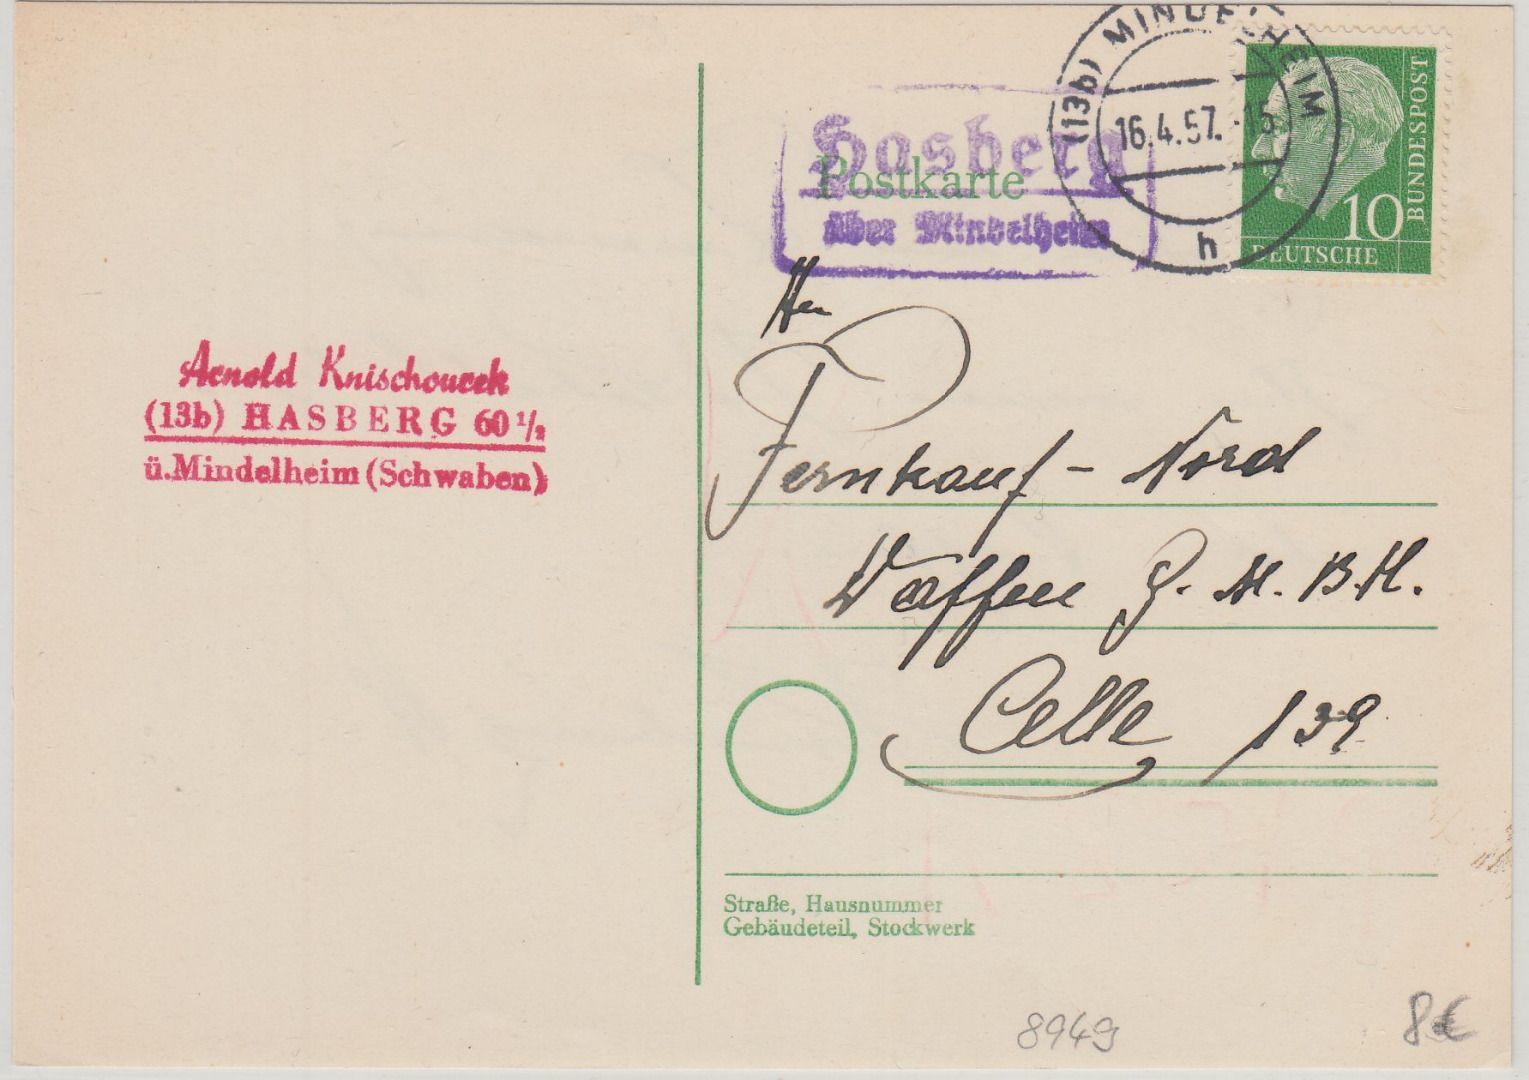 (13b) MINDELHEIM
16.4.57.-15
h
10
BUNDESPOST
DEUTSCHE
Hasberg
über Mindelheim
Postkarte
Arnold Knischourek
(13b) HASBERG 60 1/2
ü. Mindelheim (Schwaben)
Fernkauf - Nord
Waffen G. M. B. H.
Celle 139
Straße, Hausnummer
Gebäudeteil, Stockwerk
8949
8€